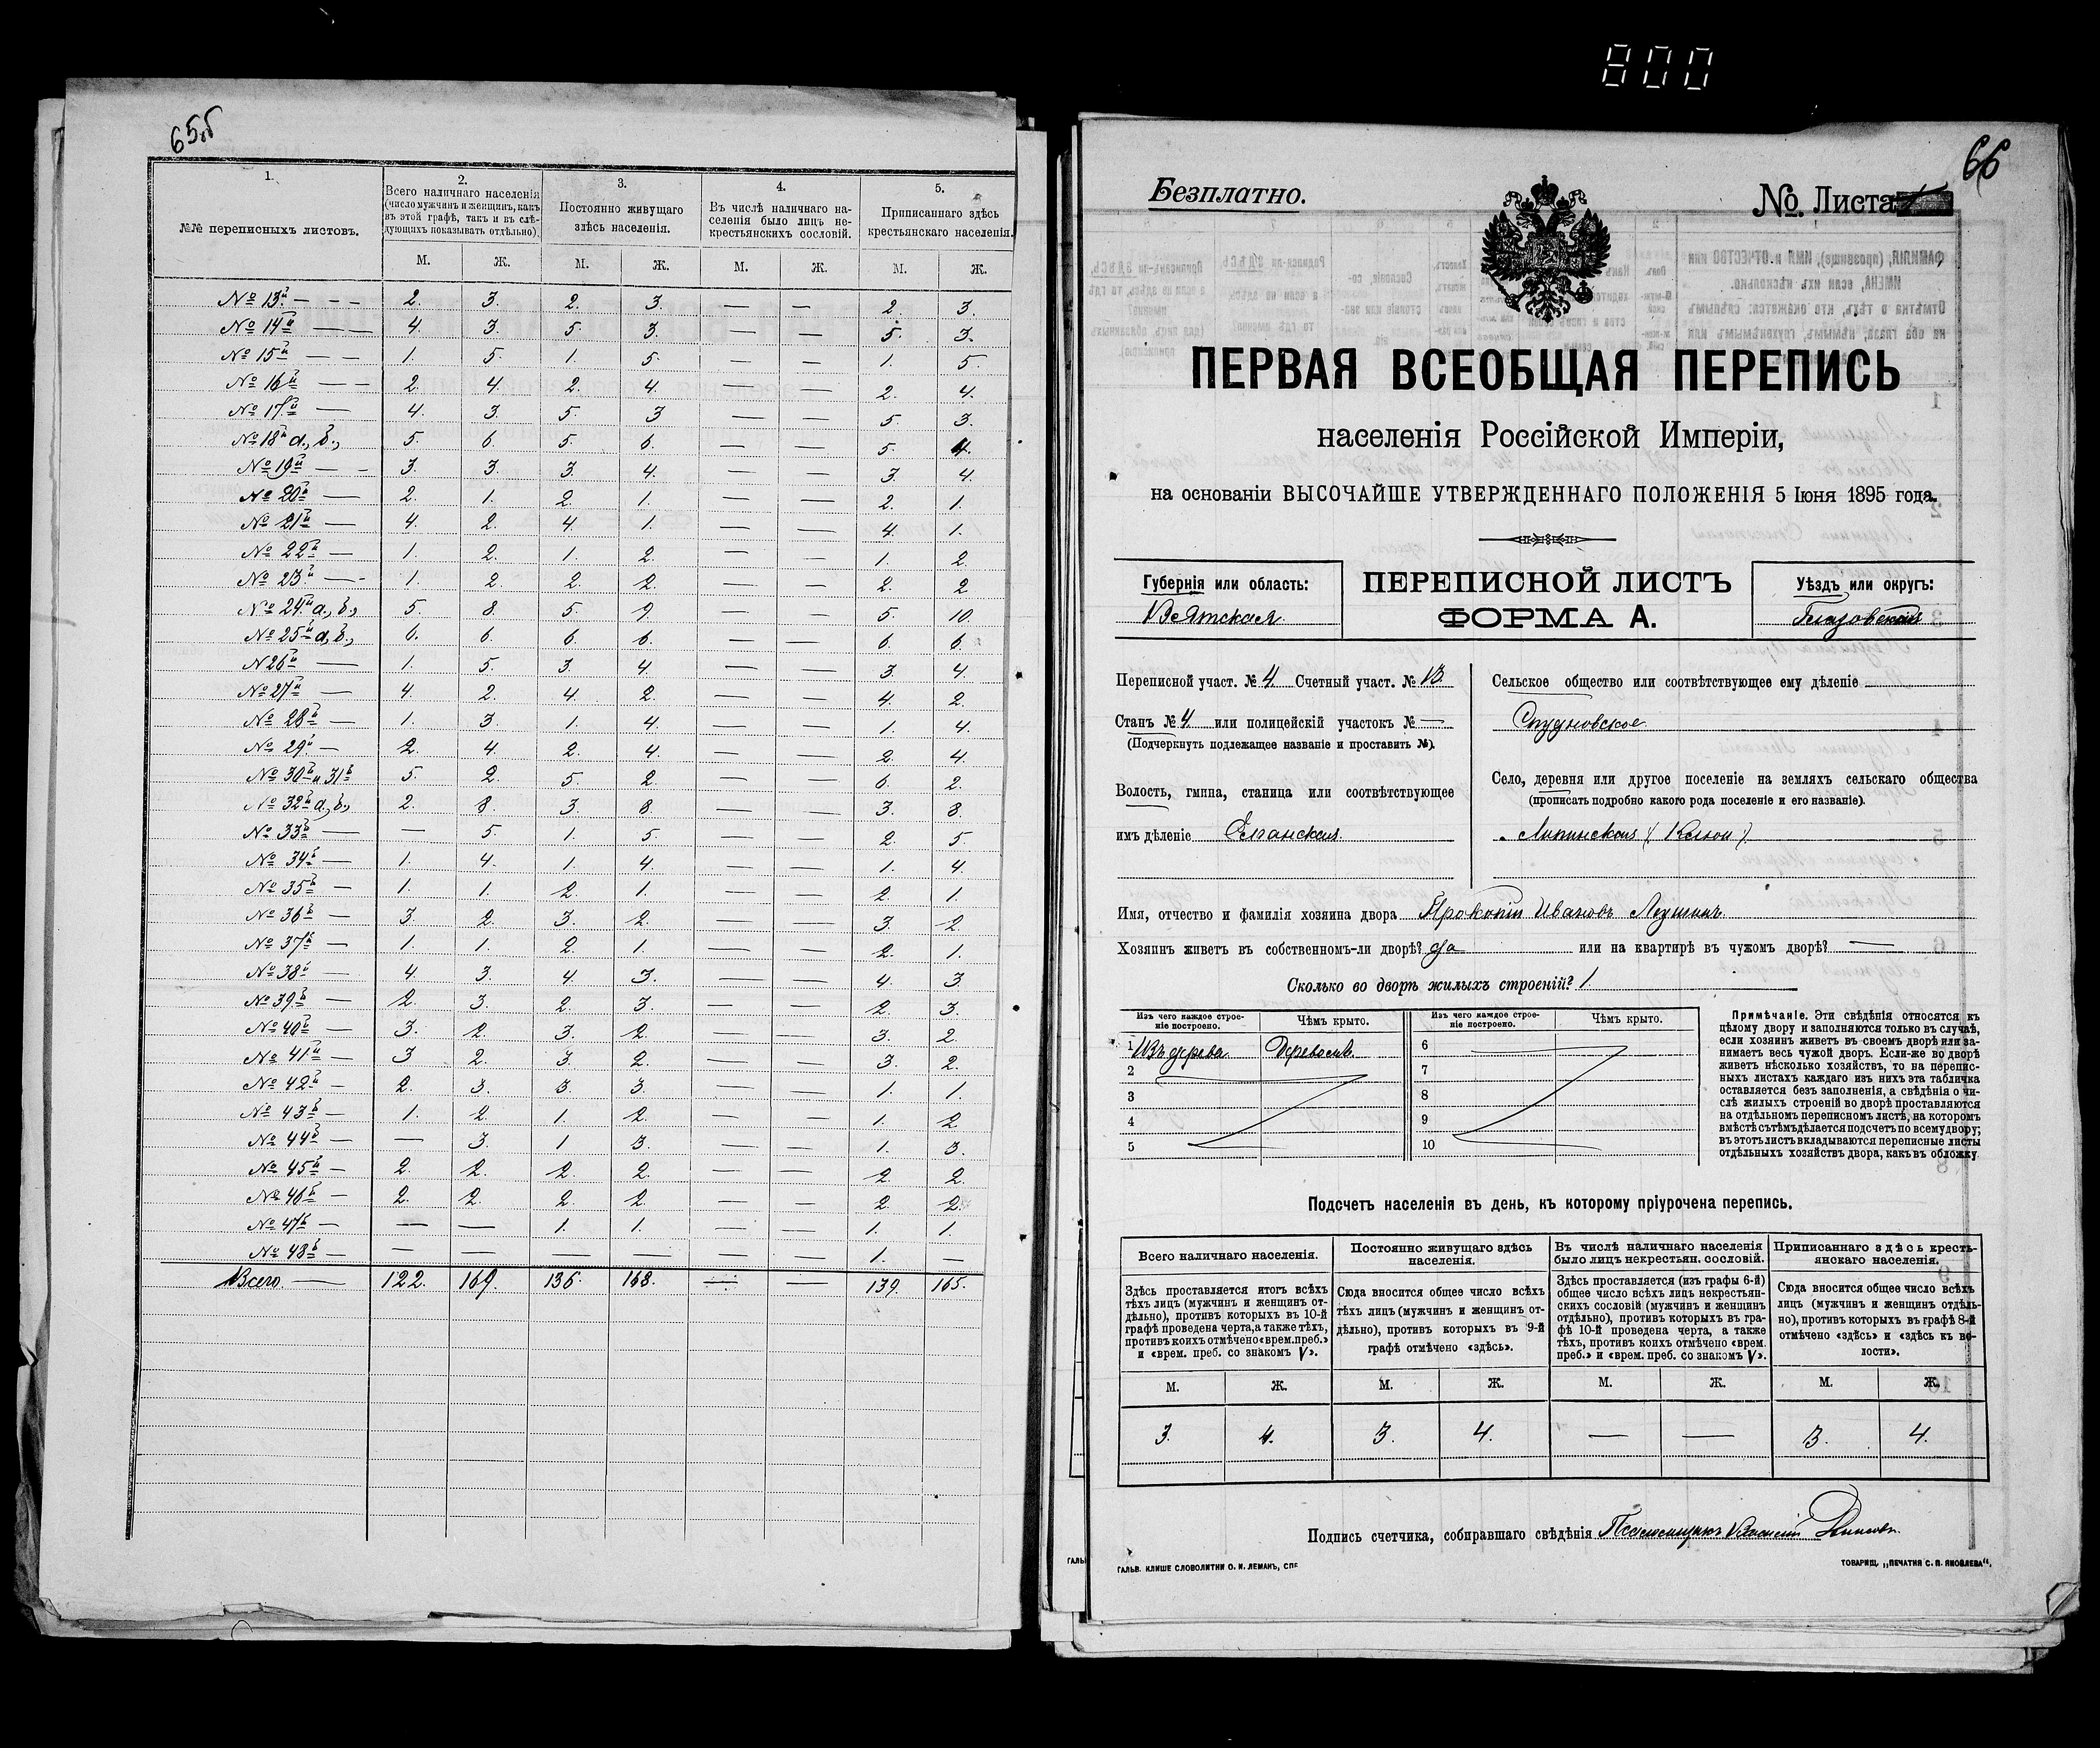 800
65об
1.
2.
3.
4.
5.
№№ переписныхъ листовъ.
Всего наличнаго населенія
(число мужчинъ и женщинъ, какъ
въ этой графѣ, такъ и въ слѣ-
дующихъ показывать отдѣльно).
Постоянно живущаго
здѣсь населенія.
Въ числѣ наличнаго на-
селенія было лицъ не-
крестьянскихъ сословій.
Приписаннаго здѣсь
крестьянскаго населенія.
М. Ж. М. Ж. М. Ж. М. Ж.
№ 13й - - - 2. 3. 2. 3. — — 2. 3.
№ 14й — — 4. 3. 5. 3. — — 5. 3.
№ 15й — — 1. 5. 1. 5. — — 1. 5.
№ 16й — — 2. 4. 2. 4. — — 2. 4.
№ 17й — 4. 3. 5. 3 — — 5. 3.
№ 18й а., б., 5. 6. 5. 6. — — 5. 4.
№ 19й — - 3. 3. 3. 4. — — 3. 4.
№ 20й — 2. 1. 2. 1. — — 2. 1.
№ 21й — 4. 2. 4. 1. — — 4. 1.
№ 22й — 1. 2. 1. 2. — — 1. 2.
№ 23й — - 1. 2. 2. 2. — — 2. 2
№ 24й а., б., 5. 8. 5. 9. — — 5. 10.
№ 25й а, б., 6. 6. 6. 6. — — 6. 6.
№ 26й — 1. 5. 3. 4. — — 3. 4.
№ 27й — 4. 2. 4. 2. — — 4. 2.
№ 28й — 1. 3. 1. 4. — — 1. 4.
№ 29й — 2. 4. 2. 4. — — 2. 4.
№ 30й и 31й 5. 2. 5. 2. — — 6. 2.
№ 32й а., б., 2. 8. 3. 8. — — 3. 8.
№ 33й — — 5. 1. 5. — — 2. 5.
№ 34й — 1. 4. 1. 4. — — 1. 4.
№ 35й — 1. 1. 2. 1. — — 2. 1.
№ 36й — 3. 2. 3. 2. — — 3. 2.
№ 37й — 1. 1. 2. 1. — — 2. 1.
№ 38й — 4. 3. 4. 3. — — 4. 3
№ 39й — 2. 3. 2. 3. — — 2. 3.
№ 40й — 3. 2. 3. 2. — — 3. 2.
№ 41й — 3 2. 3. 2. — — 3. 2.
№ 42й — 2. 3. 3. 3. — — 1. 1.
№ 43й — 1. 2. 1. 2. — — 1. 2
№ 44й — — 3. 1 3. — — 1. 3.
№ 45й — 2. 2. 2. 2. — — 2. 2.
№ 46й — 2. 2. 2. 2. — — 2. 2.
№ 47й — — — 1. 1. — — 1. 1.
№ 48й — — — — — — — 1. —
Всего — 122. 169. 136. 168. — — 139. 165.
66
Безплатно.
№. Листа
ПЕРВАЯ ВСЕОБЩАЯ ПЕРЕПИСЬ
населенія Россійской Имперіи,
на основаніи ВЫСОЧАЙШЕ УТВЕРЖДЕННАГО ПОЛОЖЕНІЯ 5 Іюня 1895 года.
Губернія или область:
Вятская
ПЕРЕПИСНОЙ ЛИСТЪ
ФОРМА А.
Уѣздъ или округъ:
Глазовскій
Переписной участ. № 4 Счетный участ. № 13
Станъ № 4 или полицейскій участокъ № —
(Подчеркнуть подлежащее названіе и проставить №).
Волость, гмина, станица или соотвѣтствующее
имъ дѣленіе Елганская
Сельское общество или соотвѣтствующее ему дѣленіе
Село, деревня или другое поселеніе на земляхъ сельскаго общества
(прописать подробно какого рода поселеніе и его названіе).
Имя, отчество и фамилія хозяина двора Прокопій Ивановъ
Хозяинъ живетъ въ собственномъ-ли дворѣ? да или на квартирѣ въ чужомъ дворѣ? —
Сколько во дворѣ жилыхъ строеній? 1.
Изъ чего каждое строе-
ніе построено.
Чѣмъ крыто.
Изъ чего каждое строе-
ніе построено.
Чѣмъ крыто.
1 Изъ дерева Деревомъ 6
2 7
3 8
4 9
5 10
Примѣчаніе. Эти свѣдѣнія относятся къ
цѣлому двору и заполняются только въ случаѣ,
если хозяинъ живетъ въ своемъ дворѣ или за-
нимаетъ весь чужой дворъ. Если-же во дворѣ
живетъ нѣсколько хозяйствъ, то на перепис-
ныхъ листахъ каждаго изъ нихъ эта табличка
оставляется безъ заполненія, а свѣдѣнія о чи-
слѣ жилыхъ строеній во дворѣ проставляются
на отдѣльномъ переписномъ листѣ, на которомъ
вмѣстѣ съ тѣмъ дѣлается подсчетъ по всему двору;
въ этотъ листъ вкладываются переписные листы
отдѣльныхъ хозяйствъ двора, какъ въ обложку
Подсчетъ населенія въ день, къ которому пріурочена перепись.
Всего наличнаго населенія.
Здѣсь проставляется итогъ всѣхъ
тѣхъ лицъ (мужчинъ и женщинъ от-
дѣльно), противъ которыхъ въ 10-й
графѣ проведена черта, а также тѣхъ,
противъ коихъ отмѣчено «врем. преб.»
и «врем. преб. со знакомъ V».
Постоянно живущаго здѣсь
населенія.
Сюда вносится общее число всѣхъ
тѣхъ лицъ (мужчинъ и женщинъ от-
дѣльно), противъ которыхъ въ 9-й
графѣ отмѣчено «здѣсь».
Въ числѣ наличнаго населенія
было лицъ некрестьян. сословій.
Здѣсь проставляется (изъ графы 6-й)
общее число всѣхъ лицъ некрестьян-
скихъ сословій (мужчинъ и женщинъ
отдѣльно), противъ которыхъ въ гра-
фѣ 10-й проведена черта, а также
тѣхъ, противъ коихъ отмѣчено «врем.
преб.» и «врем. преб. со знакомъ V».
Приписаннаго здѣсь кресть-
янскаго населенія.
Сюда вносится общее число всѣхъ
лицъ (мужчинъ и женщинъ отдѣль-
но), противъ которыхъ въ графѣ 8-й
отмѣчено «здѣсь» и «здѣсь къ во-
лости».
М. Ж. М. Ж. М. Ж. М. Ж.
3. 4. 3. 4. — — 3. 4.
Подпись счетчика, собиравшаго свѣдѣнія Псаломщикъ Василій
ГАЛЬВ. КЛИШЕ СЛОВОЛИТНИ О. И. ЛЕМАНЪ, СПБ
ТОВАРИЩ. „ПЕЧАТНЯ С. П. ЯКОВЛЕВА“.